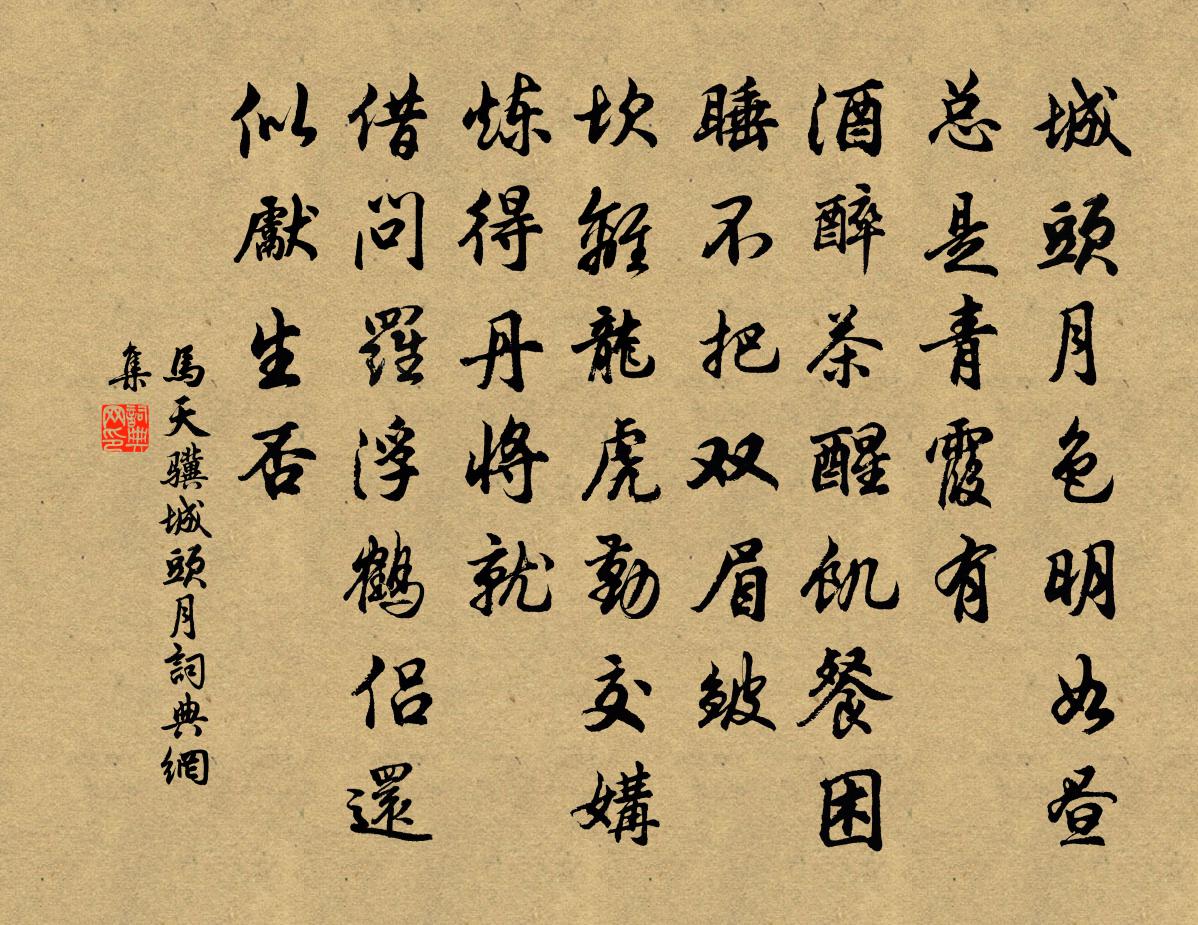 城頭月色明如昼
总是青霞有
酒醉茶醒飢餐困
睡不把双眉皱
坎離龍虎勤交媾
炼得丹将就
借问羅浮鶴侣還
似獻生否
馬天骥城頭月詞典網
集
詞典网印